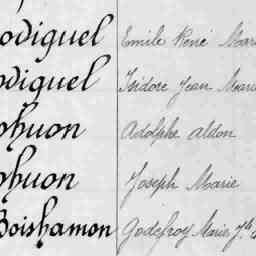 odiguel Emile René Mari
odiguel Isidore Jean Marie
phuon Adolphe aldon
phuon Joseph Marie
Boishamon Godefroy Marie Jh